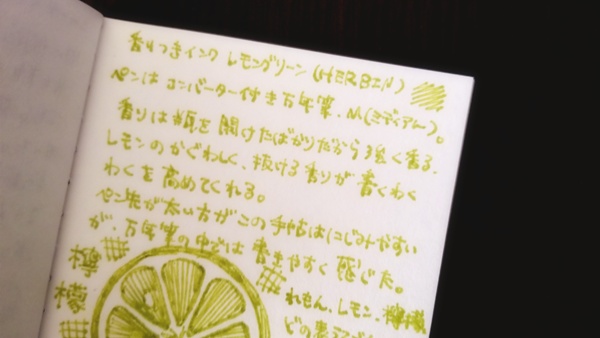 香りつきインク レモングリーン(HERBIN)
ペンは コンバーター付き万年筆、M(ミディアム)。
香りは瓶を開けたばかりだから強く香る。
レモンのかぐわしく、抜ける香りが書くわく
わくを高めてくれる。
ペン先が太い方がこの手帖はにじみやすい
が、万年筆の中では書きやすく感じた。
檸
檬
れもん、レモン、檸檬、
どの